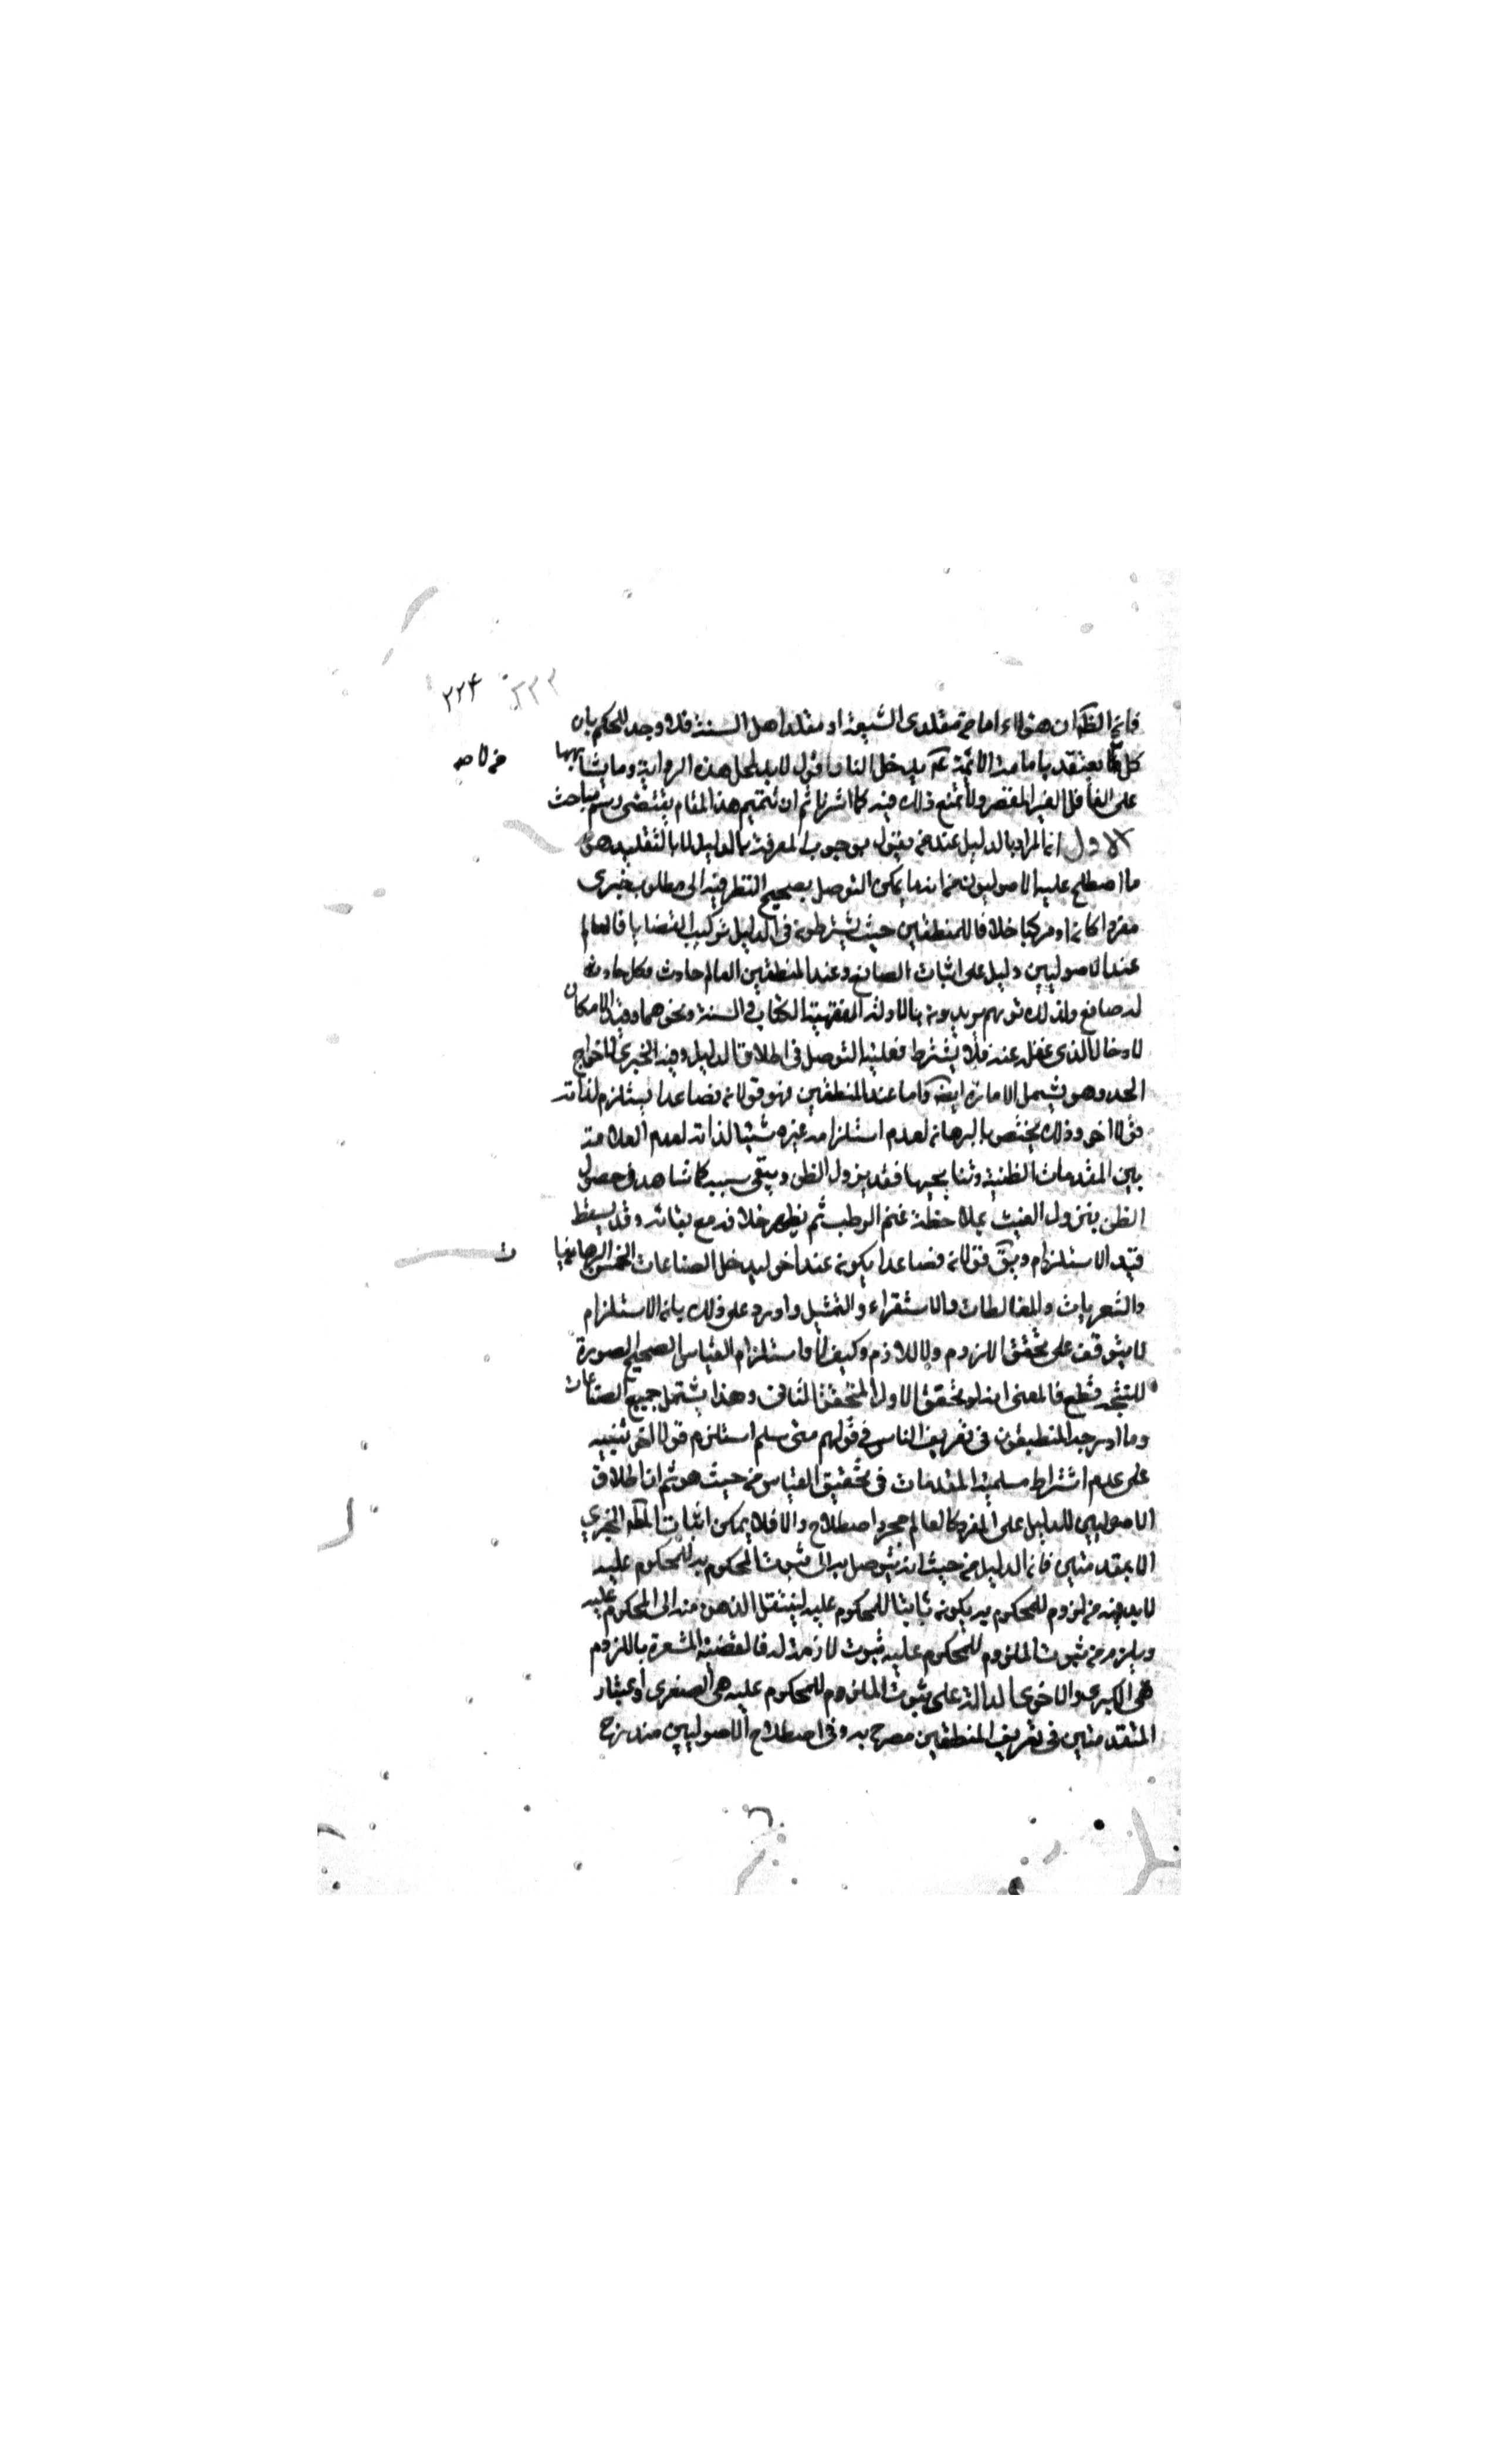 ۲۲۳ ۲۲۴
فان الظ ان هؤلاء اما من مقلدى الشيعة او مقلد اهل السنة فلا وجه للحكم بان
كل من لا يعتقد بامامة الائمة عم يدخل النار اقول لابد لحمل هذه الرواية وما يشابهها
من لا صه
على الغافل الغير المقصر ولا يمتنع ذلك فيه كما اشرنا ثم ان تتميم هذا المقام يقتضى رسم مباحث
الاول ان المراد بالدليل عند من يقول بوجوب المعرفة بالدليل لا بالتقليد هو
ما اصطلح عليه الاصوليون من انه ما يمكن التوصل بصحيح النظر فيه الى مطلوب خبرى
مفردا كان او مركبا خلافا للمنطقيين حيث يشترطون فى الدليل تركيب القضايا فالعالم
عند الاصوليين دليل على اثبات الصانع وعند المنطقيين العالم حادث وكل حادث
له صانع ولذلك تريهم يريدون بالادلة الفقهية الكتاب والسنة ونحوهما وقيد الامكان
لادخال الذى غفل عنه فلا يشترط فعلية التوصل فى اطلاق الدليل وقيد الخبرى لاخراج
الحد وهو يشمل الامارة ايضا واما عند المنطقيين فهو قولان فصاعدا يستلزم لذاته
قولا اخر وذلك يختص بالبرهان لعدم استلزام غيره شيئا لذاته لعدم العلاقة
بين المقدمات الظنية ونتايجها فقد يزول الظن ويبقى سببه كما نشاهد فى حصول
الظن بنزول الغيث بملاحظة غيم الرطب ثم يظهر خلافه مع بقائه وقد يسقط
قيد الاستلزام ويق قولان فصاعدا يكون عنه اخر ليدخل الصناعات الخمس
والشعريات والمغالطات والاستقراء والتمثيل واورد على ذلك بان الاستلزام
لا يتوقف على تحقق الملزوم ولا اللازم وكيف لا واستلزام القياس الصحيح الصورة
للنتيجة قطع فالمعنى انه لو تحقق الاول لتحقق الثانى وهذا يشتمل جميع الصناعات
وما ادرجه المنطقيون فى تعريف القياس فى قولهم متى سلم استلزم قولا اخر تنبيه
على عدم اشتراط مسلمية المقدمات فى تحقيق القياس من حيث هو ثم ان اطلاق
الاصوليين للدليل على المفرد كالعالم مجرد اصطلاح والا فلا يمكن اثبات المط الخبرى
الا بمقدمتين فان الدليل من حيث انه يتوصل به الى ثبوت المحكوم به للمحكوم عليه
لابد فيه من لزوم للمحكوم به يكون ثابتا للمحكوم عليه لينتقل الذهن منه الى المحكوم عليه
ويلزم من ثبوت الملزوم للمحكوم عليه ثبوت لازمه له فالقضية المشعرة باللزوم
هى الكبرى والاخرى الدالة على ثبوت الملزوم للمحكوم عليه هى الصغرى واعتبار
المقدمتين فى تعريف المنطقيين مصرح به وفى اصطلاح الاصوليين مندرج